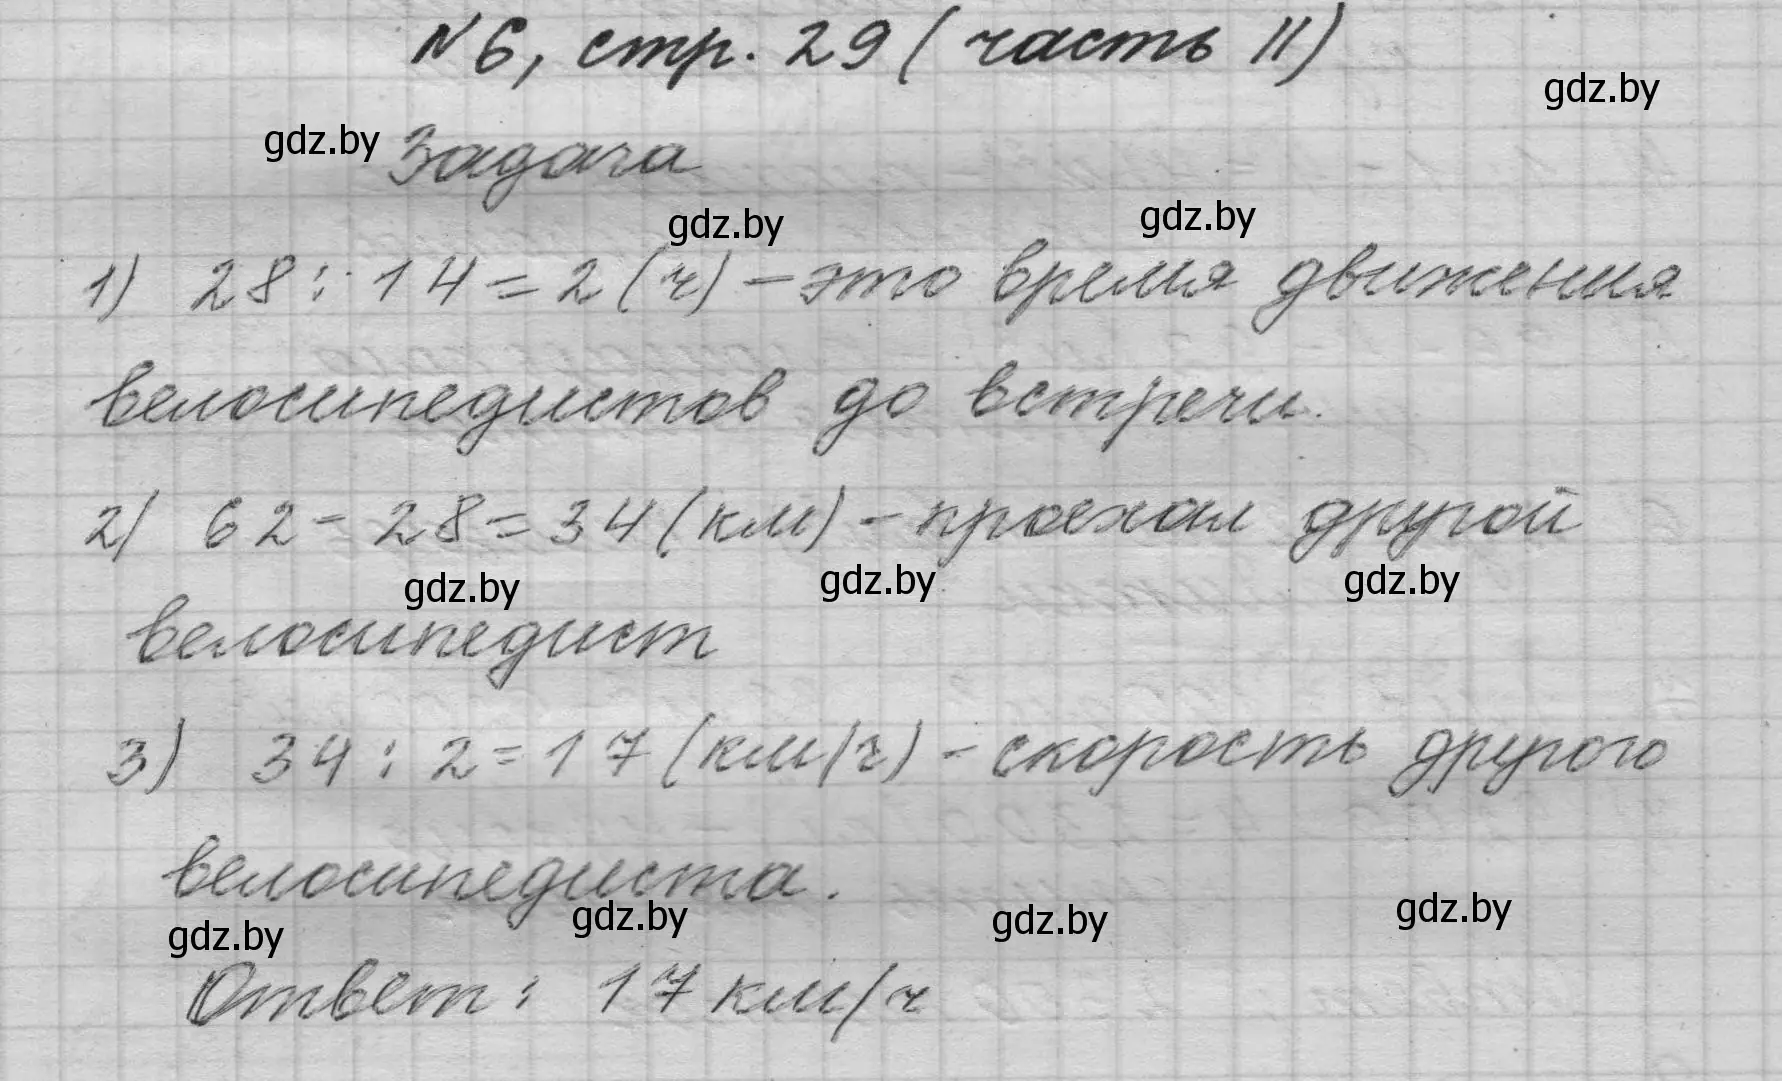 №6, стр. 29 (часть II)
gdz.by
gdz.by
Задача
gdz.by
gdz.by
1) 28 : 14 = 2 (ч) - это время движения
велосипедистов до встречи.
2) 62 - 28 = 34 (км) - проехал другой
gdz.by
gdz.by
gdz.by
велосипедист
3) 34 : 2 = 17 (км/ч) - скорость другого
велосипедиста.
gdz.by
gdz.by
gdz.by
gdz.by
Ответ: 17 км/ч